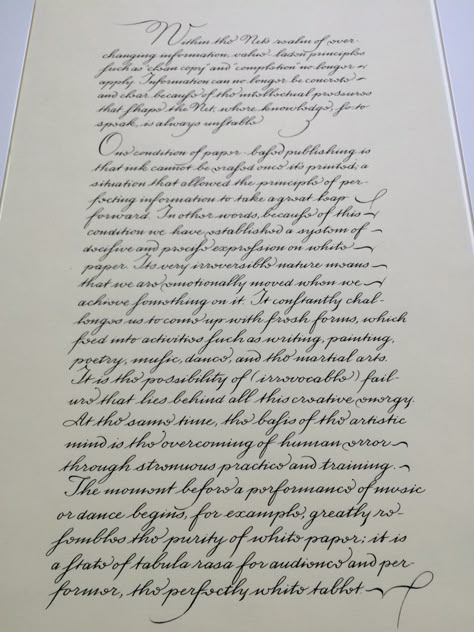 Within the Net's realm of ever-
changing information, value-laden principles
such as "clean copy" and "completion" no longer
apply. Information can no longer be concrete
and clear because of the intellectual pressures
that shape the Net, where knowledge, so to
speak, is always unstable
One condition of paper-based publishing is
that ink cannot be erased once its printed, a
situation that allowed the principle of per-
fecting information to take a great leap
forward. In other words, because of this
condition we have established a system of
decisive and precise expression on white
paper. Its very irreversible nature means
that we are emotionally moved when we
achieve something on it. It constantly chal-
lenges us to come up with fresh forms, which
feed into activities such as writing, painting,
poetry, music, dance, and the martial arts.
It is the possibility of (irrevocable) fail-
ure that lies behind all this creative energy.
At the same time, the basis of the artistic
mind is the overcoming of human error
through strenuous practice and training.
The moment before a performance of music
or dance begins, for example, greatly re-
sembles the purity of white paper; it is
a state of tabula rasa for audience and per-
former, the perfectly white tablet